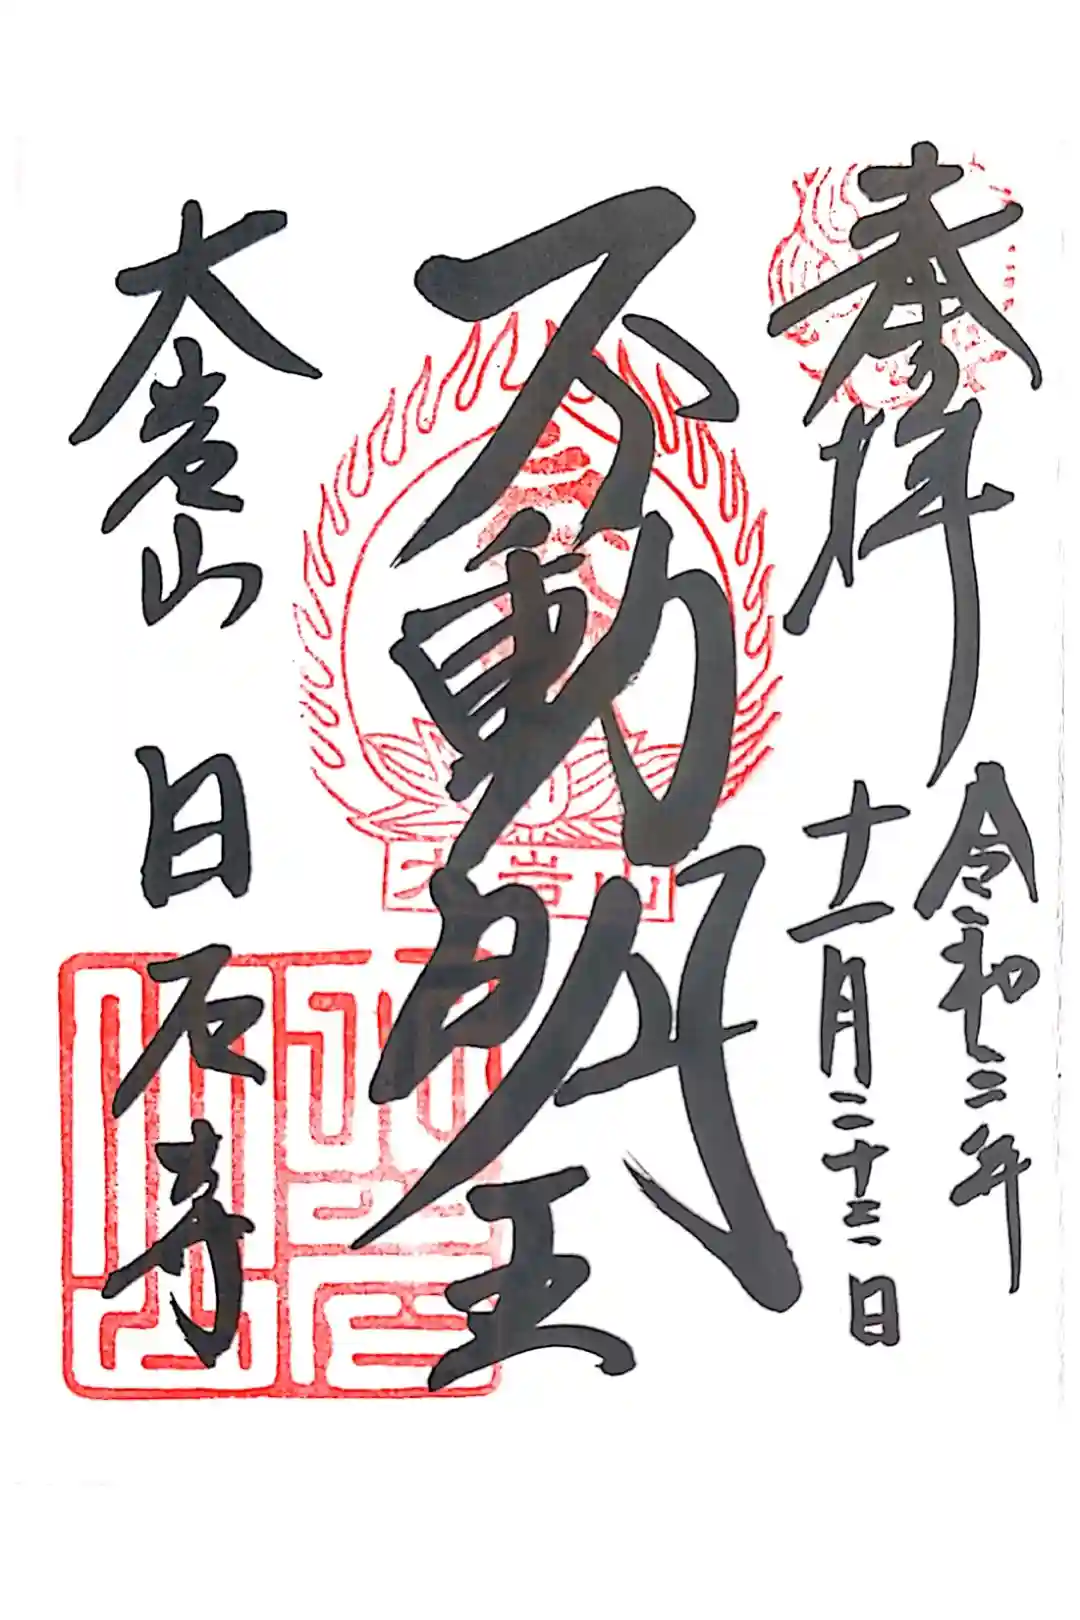 奉拝
令和二年
十一月二十三日
不動明王
大岩山
大岩山 日石寺